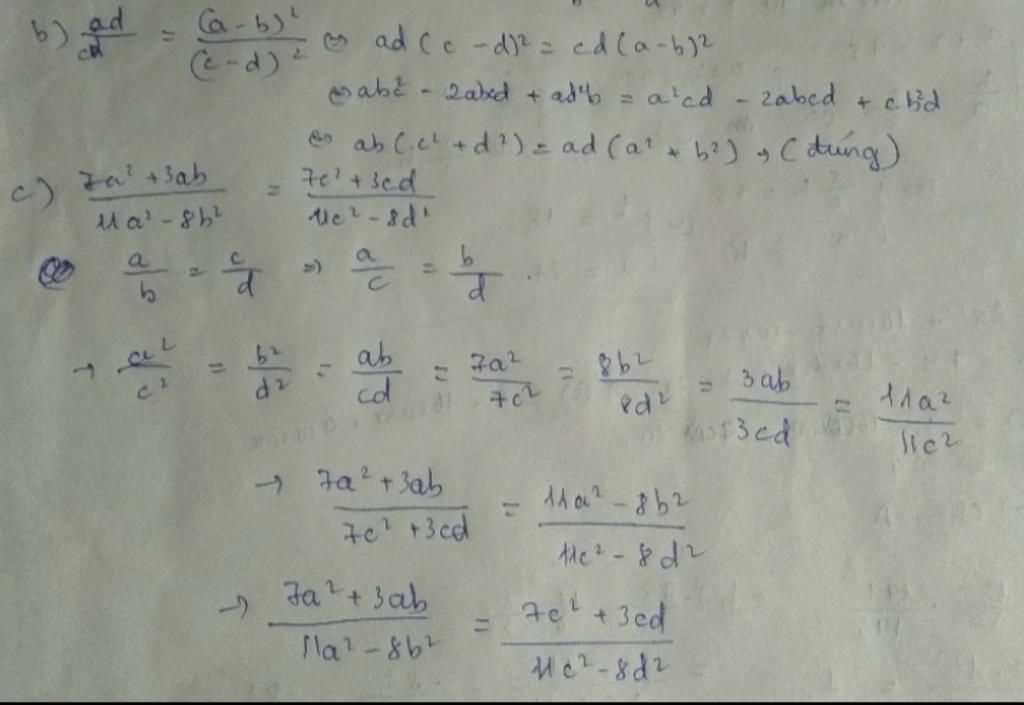 b) ad/cd = (a-b)²/(c-d)² ⇔ ad(c-d)² = cd(a-b)²
⇔ abc² - 2abcd + ad²b = a²cd - 2abcd + cb²d
⇔ ab(c²+d²) = ad(a²+b²) → (đúng)
c) 7a²+3ab/11a²-8b² = 7c²+3cd/11c²-8d²
a/b = c/d ⇒ a/c = b/d .
→ a²/c² = b²/d² = ab/cd = 7a²/7c² = 8b²/8d² = 3ab/3cd = 11a²/11c²
→ 7a²+3ab/7c²+3cd = 11a²-8b²/11c²-8d²
→ 7a²+3ab/11a²-8b² = 7c²+3cd/11c²-8d²